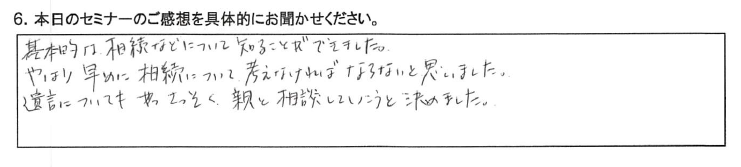 6. 本日のセミナーのご感想を具体的にお聞かせください。
基本的な相続などについて知ることができました。
やはり早めに相続について考えなければならないと思いました。
遺言についても さっそく、親と相談していこうと決めました。